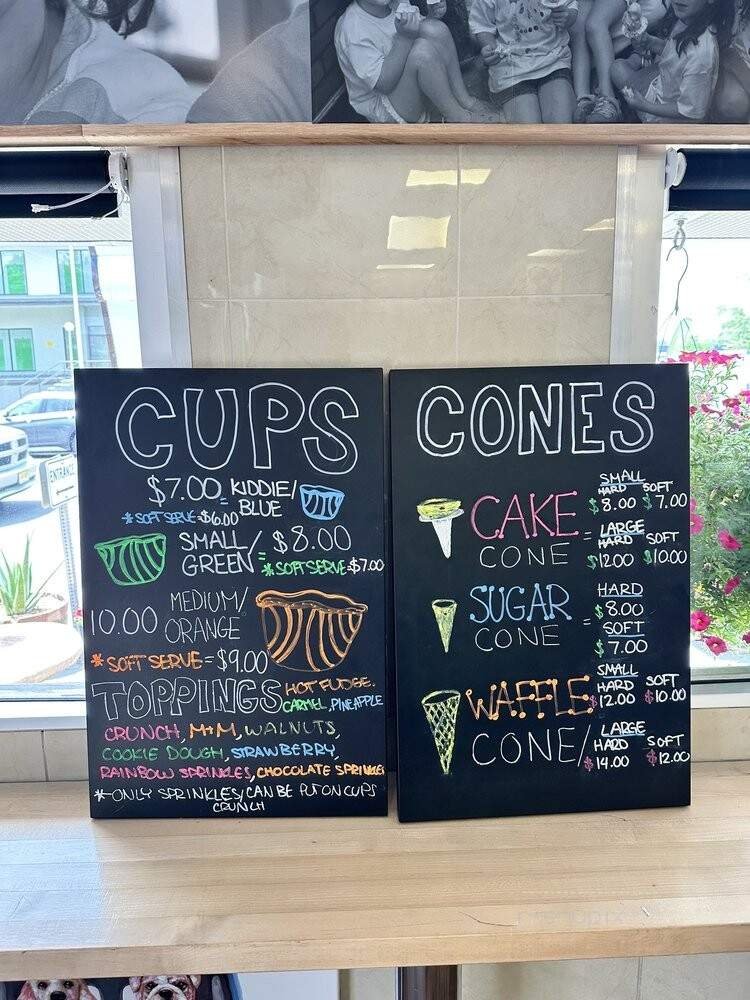 ENTRANCE
CUPS
$7.00 = KIDDIE/
BLUE
*SOFT SERVE-$6.00
SMALL/
GREEN = $8.00
*SOFT SERVE-$7.00
10.00 MEDIUM/
ORANGE
*SOFT SERVE=$9.00
TOPPINGS HOT FUDGE.
CARMEL, PINEAPPLE
CRUNCH, M+M, WALNUTS,
COOKIE DOUGH, STRAWBERRY,
RAINBOW SPRINKLES, CHOCOLATE SPRINKLES
*-ONLY SPRINKLES/CAN BE PUT ON CUPS
CRUNCH
CONES
SMALL
HARD SOFT
$8.00 $7.00
CAKE
CONE =
LARGE
HARD SOFT
$12.00 $10.00
SUGAR
CONE =
HARD
$8.00
SOFT
$7.00
WAFFLE
CONE/
SMALL
HARD SOFT
$12.00 $10.00
LARGE
HARD SOFT
$14.00 $12.00